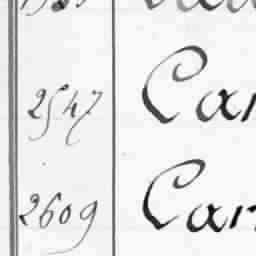 2547 Car
2609 Car